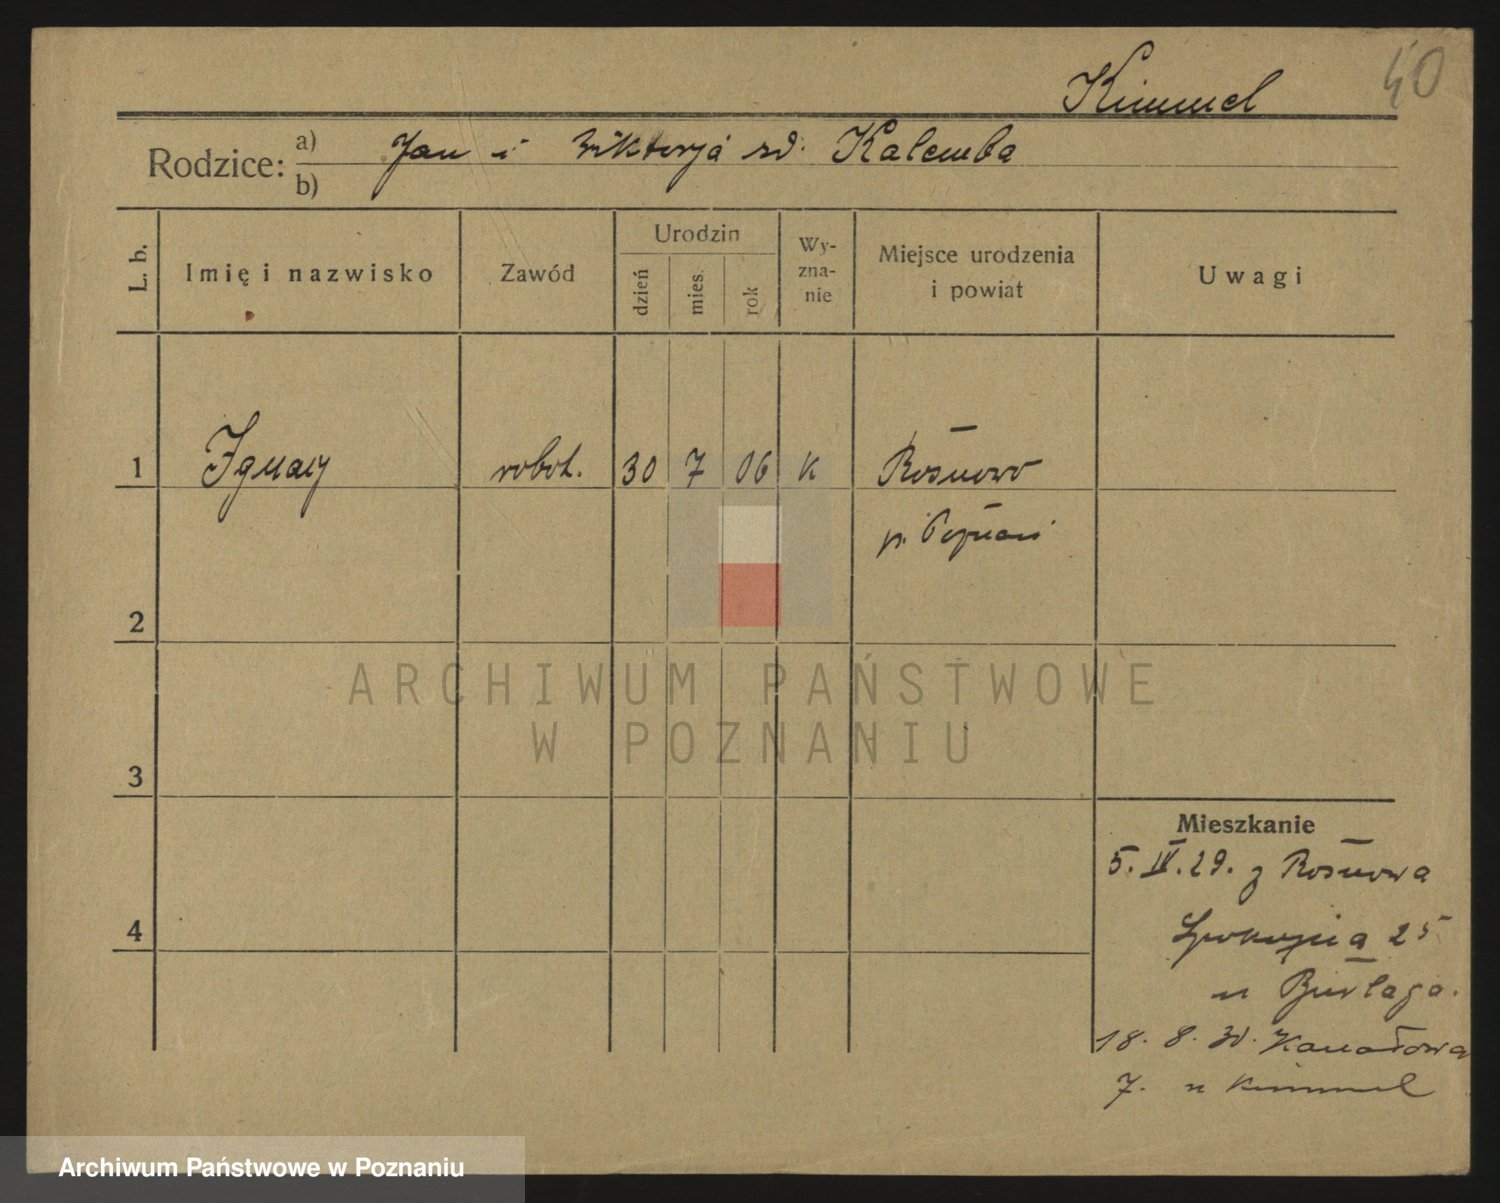 40
Kimmel
Rodzice: a) Jan i Wiktorja rd. Kalemba
b)
L. b.
Imię i nazwisko
Zawód
Urodzin
dzień
mies.
rok
Wy-
zna-
nie
Miejsce urodzenia
i powiat
Uwagi
1 Ignacy robot. 30 7 06 K Rosnowo
p. Poznań
2
ARCHIWUM PAŃSTWOWE
W POZNANIU
3
Mieszkanie
5. IV. 29. z Rosnowa
4
25
u Burlaga.
18. 8. 30. Kanałowa
7. u Kimmel
Archiwum Państwowe w Poznaniu